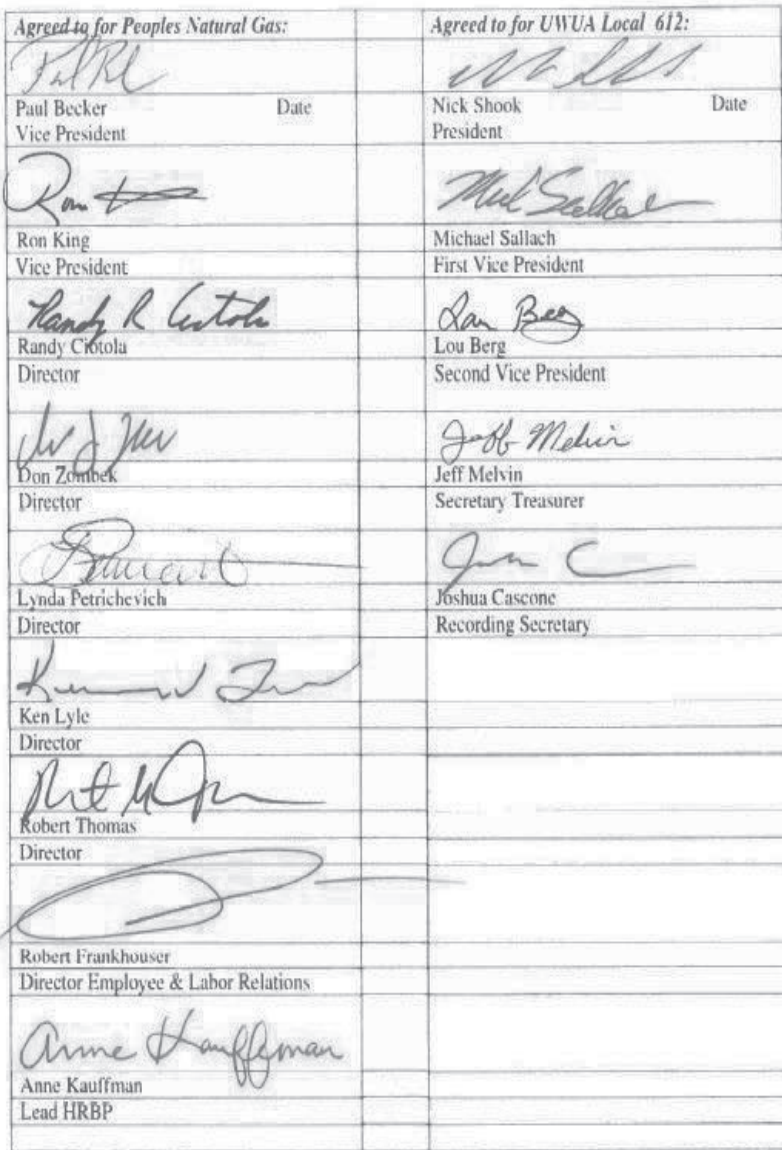 Agreed to for Peoples Natural Gas:
Paul Becker Date
Vice President
Ron King
Vice President
Randy R Ciotola
Randy Ciotola
Director
Don Zombek
Director
Lynda Petrichevich
Director
Ken Lyle
Director
Robert Thomas
Director
Robert Frankhouser
Director Employee & Labor Relations
Anne Kauffman
Anne Kauffman
Lead HRBP
Agreed to for UWUA Local 612:
Nick Shook Date
President
Michael Sallach
First Vice President
Lou Berg
Lou Berg
Second Vice President
Jeff Melvin
Jeff Melvin
Secretary Treasurer
Joshua Cascone
Recording Secretary